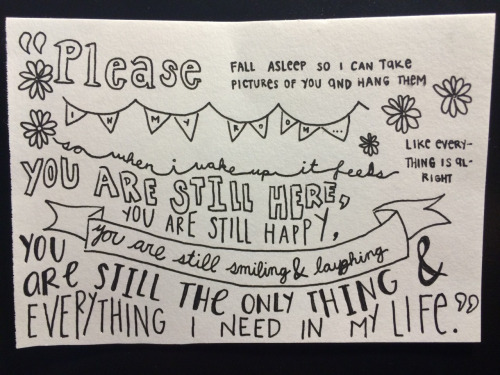 "Please
FALL ASLEEP SO I CAN TAKE
PICTURES OF YOU AND HANG THEM
IN MY ROOM...
so when i wake up it feels
LIKE EVERY-
THING IS AL-
RIGHT
YOU ARE STILL HERE,
YOU ARE STILL HAPPY,
you are still smiling & laughing
YOU
ARE STILL THE ONLY THING &
EVERYTHING I NEED IN MY LIFE."